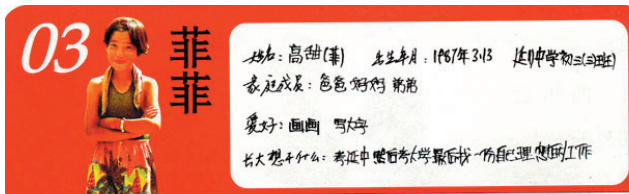 03
菲菲
姓名:高甜(菲) 出生年月:1987年3.13 延川中学初三(三)班
家庭成员:爸爸 妈妈 弟弟
爱好:画画 写大字
长大想干什么:考延中 然后考大学 最后找一份自己理想的工作